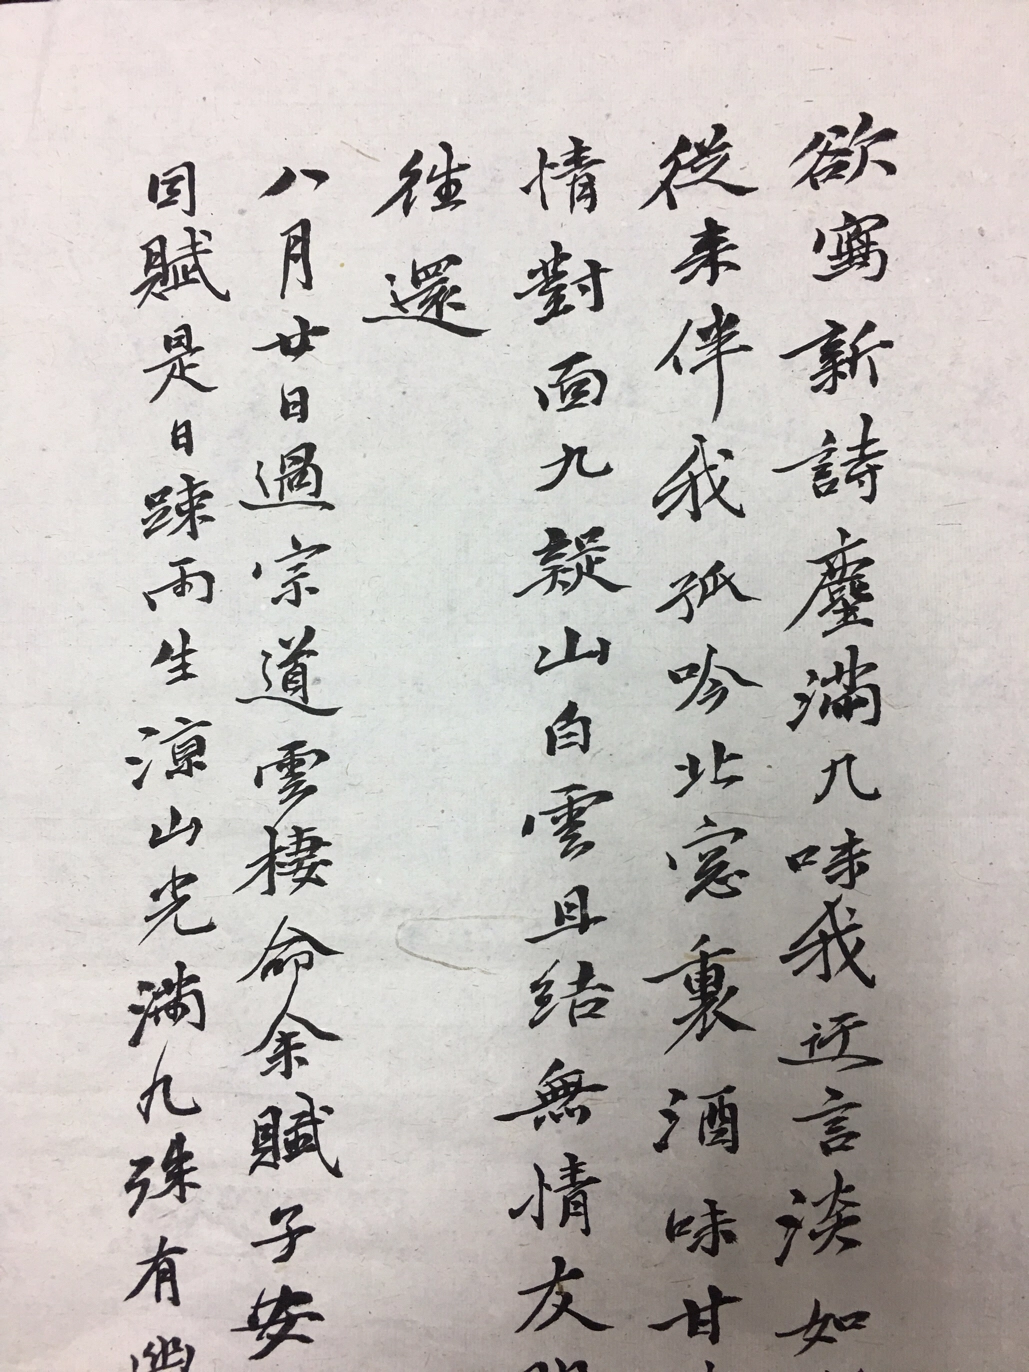 欲寫新詩塵滿几味我迂言淡如
從来伴我孤吟北窓裏酒味甘
情對面九疑山白雲且結無情友
往還
八月廿日過宗道雲棲命余賦子安
因賦是日疎雨生涼山光滿九殊有幽